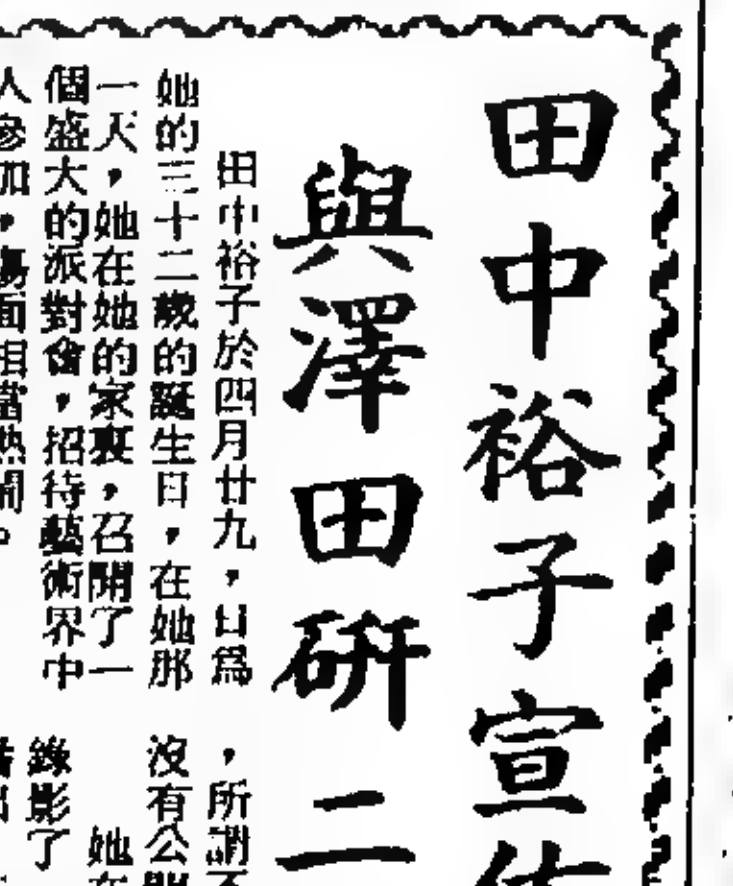 田中裕子宣佈
與澤田研二
田中裕子於四月廿九，日為
她的三十二歲的誕生日，在她那
一天，她在她的家裏，召開了一
個盛大的派對會，招待藝術界中
人參加，場面相當熱鬧。
，所謂不
沒有公開
她在
錄影了